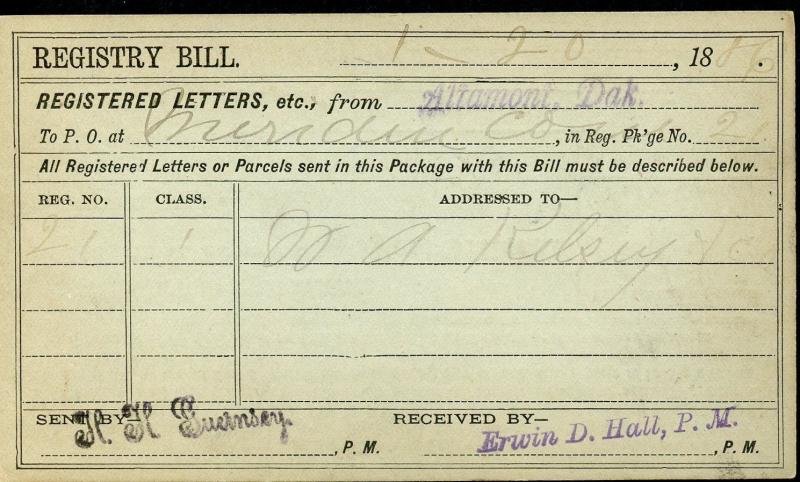 REGISTRY BILL. 1 - 20, 1886.
REGISTERED LETTERS, etc., from Altamont, Dak.
To P. O. at Meriden Conn, in Reg. Pk'ge No. 21
All Registered Letters or Parcels sent in this Package with this Bill must be described below.
REG. NO. CLASS. ADDRESSED TO—
21 1 W A Kelsey & Co
SENT BY— H. H. Guernsey. , P. M.
RECEIVED BY— Erwin D. Hall, P. M. , P. M.